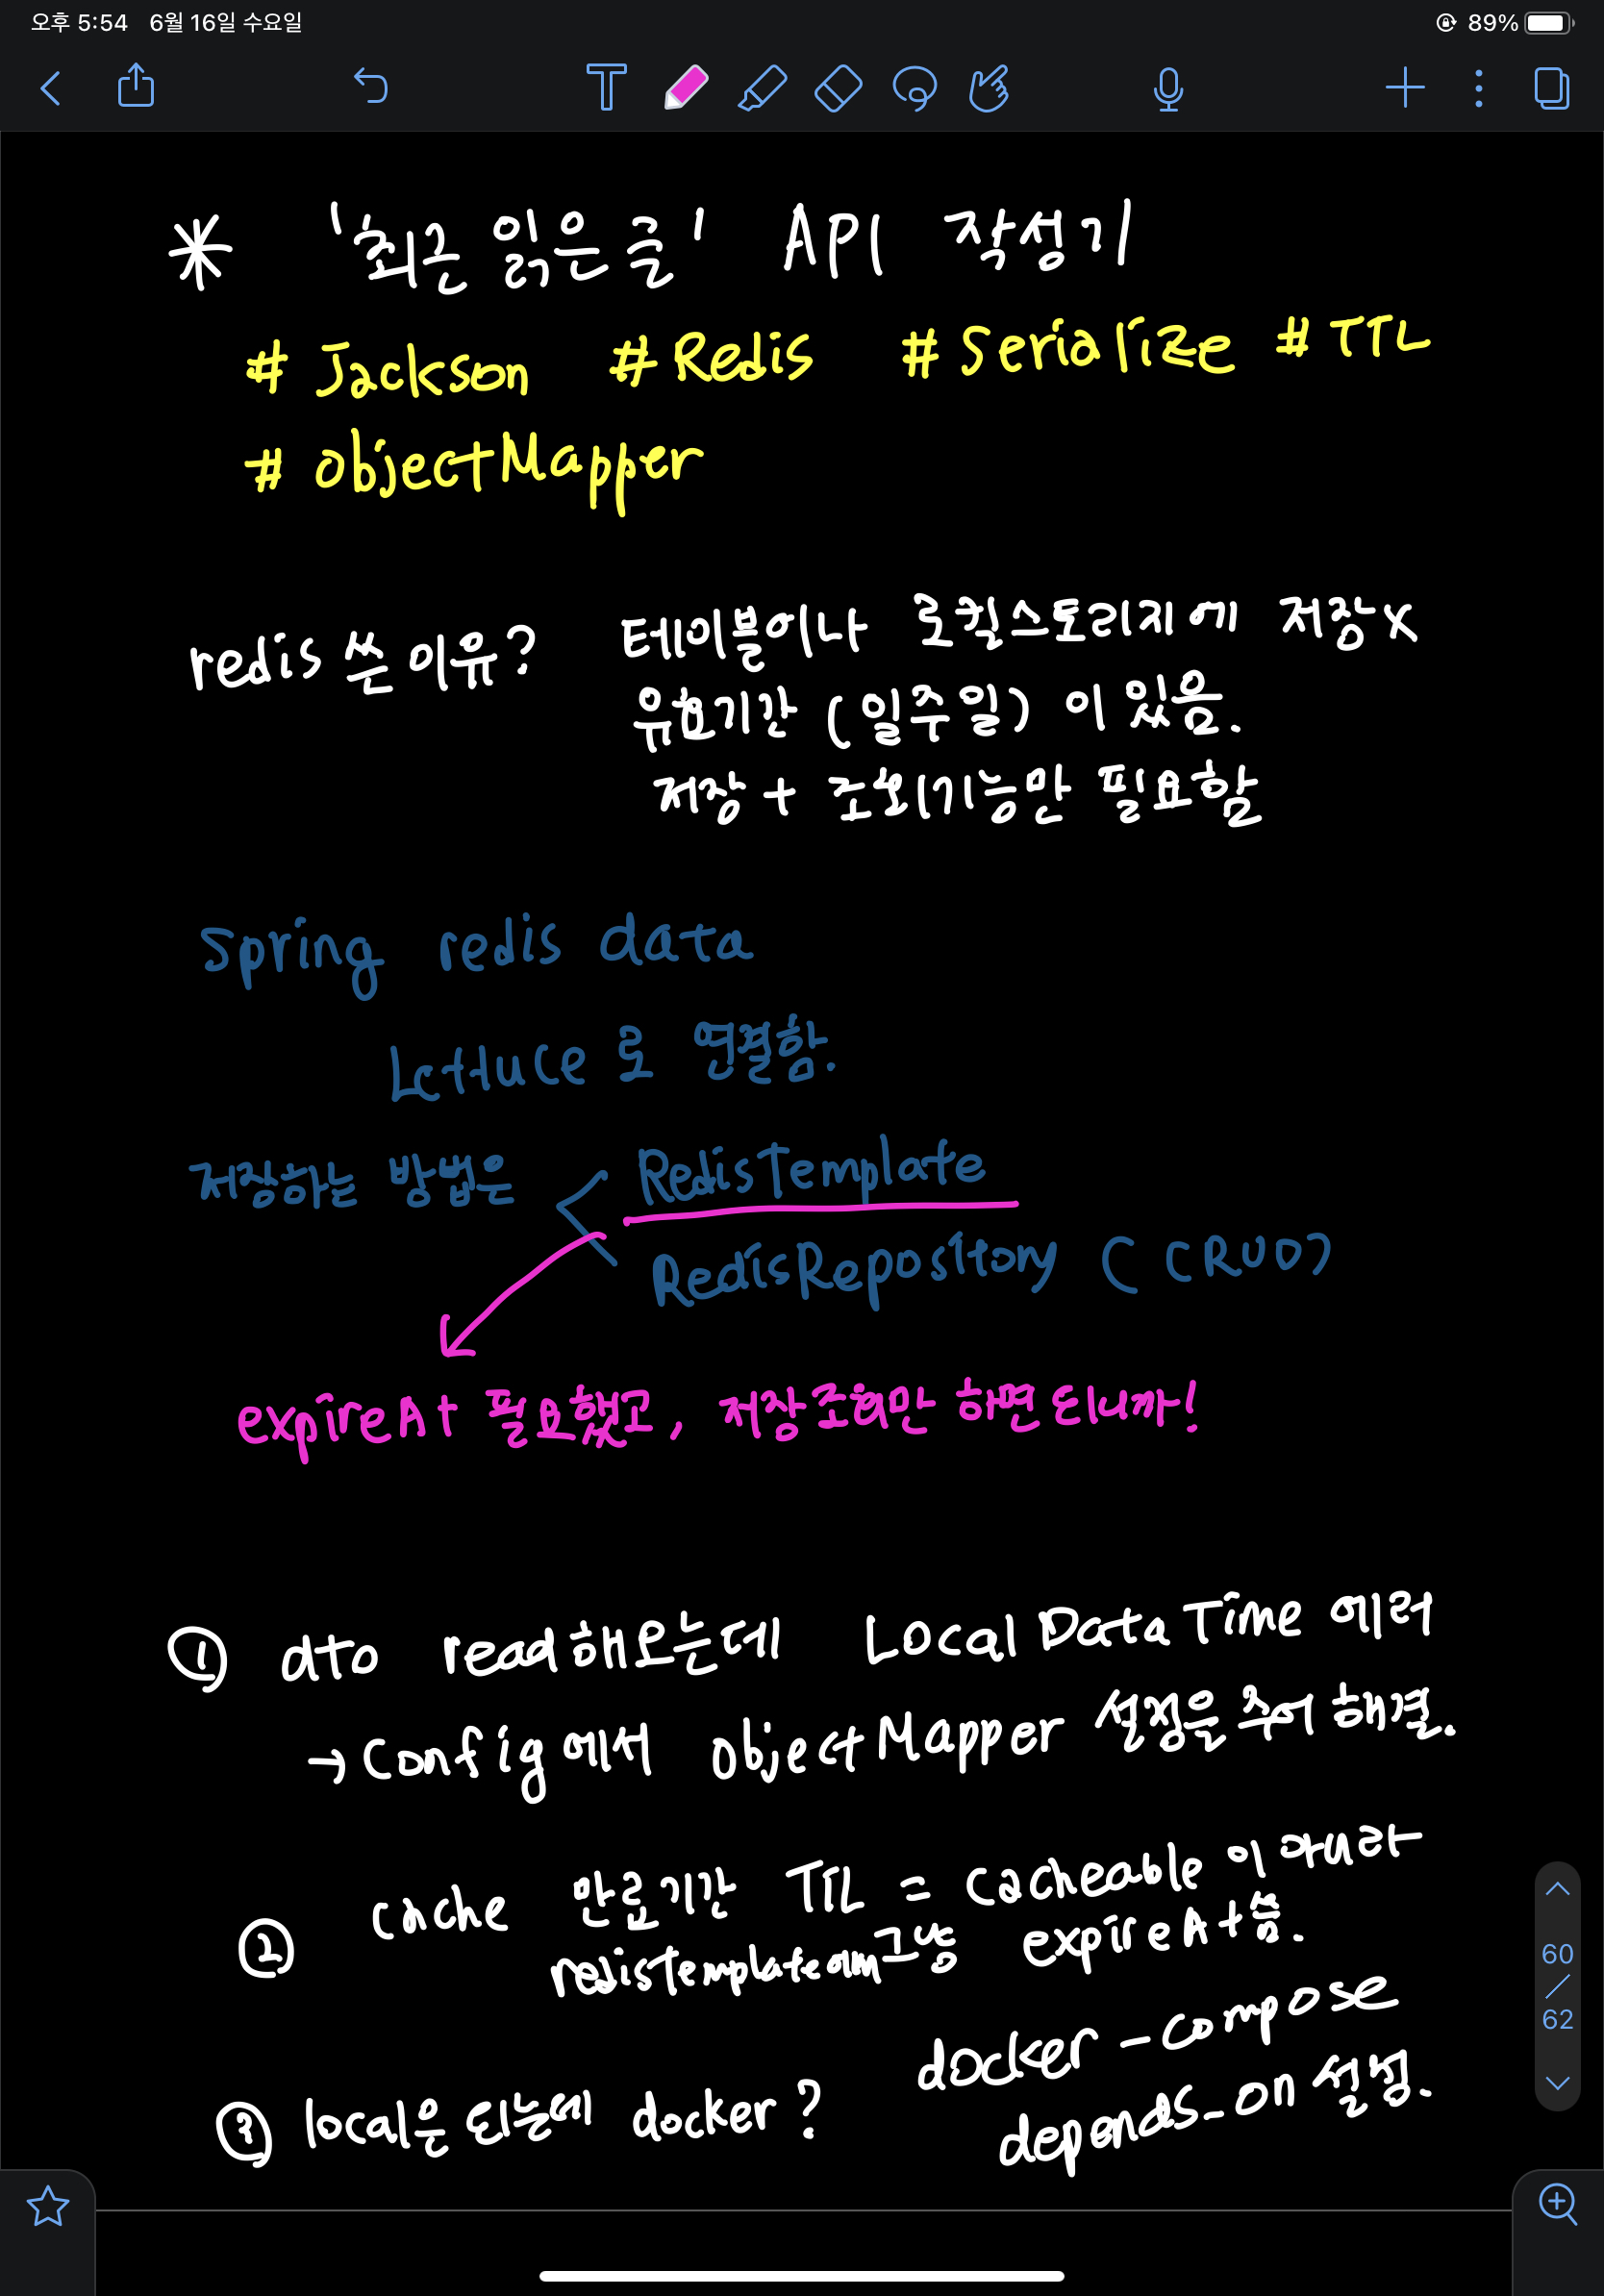 오후 5:54 6월 16일 수요일 89%
* '최근 읽은 글' API 작성기
# Jackson # Redis # Serialize # TTL
# objectMapper
redis 쓴 이유? 테이블이나 로컬스토리지에 저장X
유효기간 (일주일) 이 있음.
저장 + 조회기능만 필요함
Spring redis data
Lettuce로 연결함.
저장하는 방법은 < RedisTemplate
RedisRepository (CRUD)
expireAt 필요했고, 저장조회만 하면 되니까!
① dto read해오는데 Local Data Time 에러
→ Config에서 objectMapper 설정을 주어 해결.
② cache 만료기간 TTL = cacheable이 아니라
redistemplate에서 그냥 expireAt씀.
③ local은 되는데 docker? docker-compose
depends_on 설정.
60
/
62